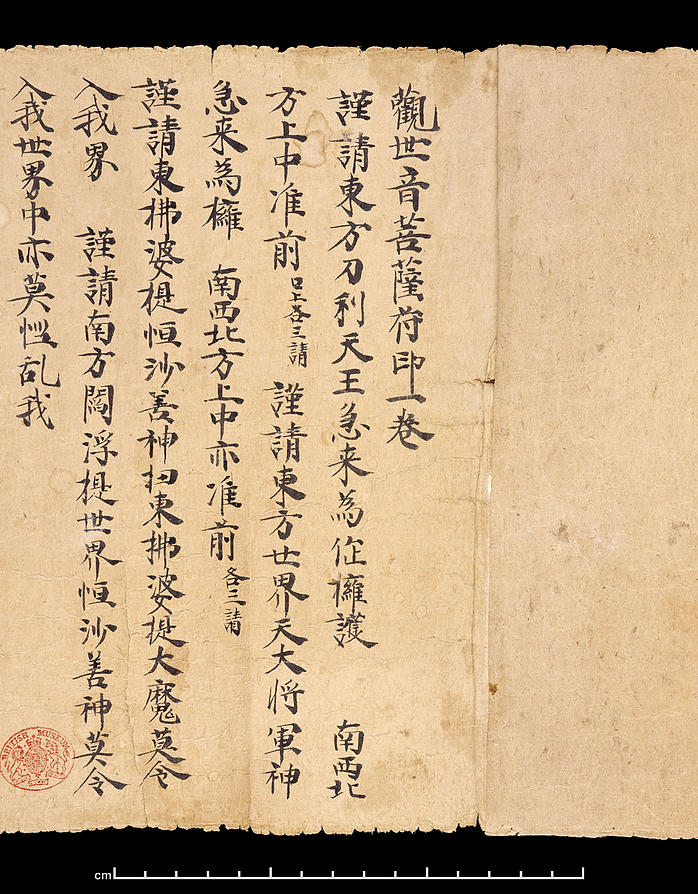 觀世音菩薩符印一卷
謹請東方刀利天王急来為作擁護 南西北
方上中准前口上各三請 謹請東方世界天大将軍神
急来為擁 南西北方上中亦准前各三請
謹請東拂婆提恒沙善神扫東拂婆提大魔莫令
入我界 謹請南方閻浮提世界恒沙善神莫令
入我世界中亦莫恼乱我
BRITISH MUSEUM
cm